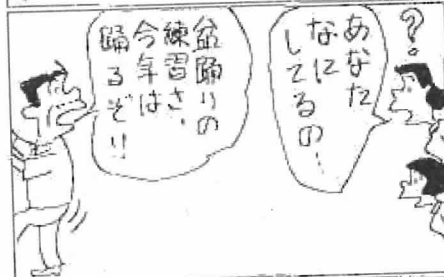 ?
あなた
なに
してるの!
盆踊りの
練習さ、
今年は
踊るぞ!!